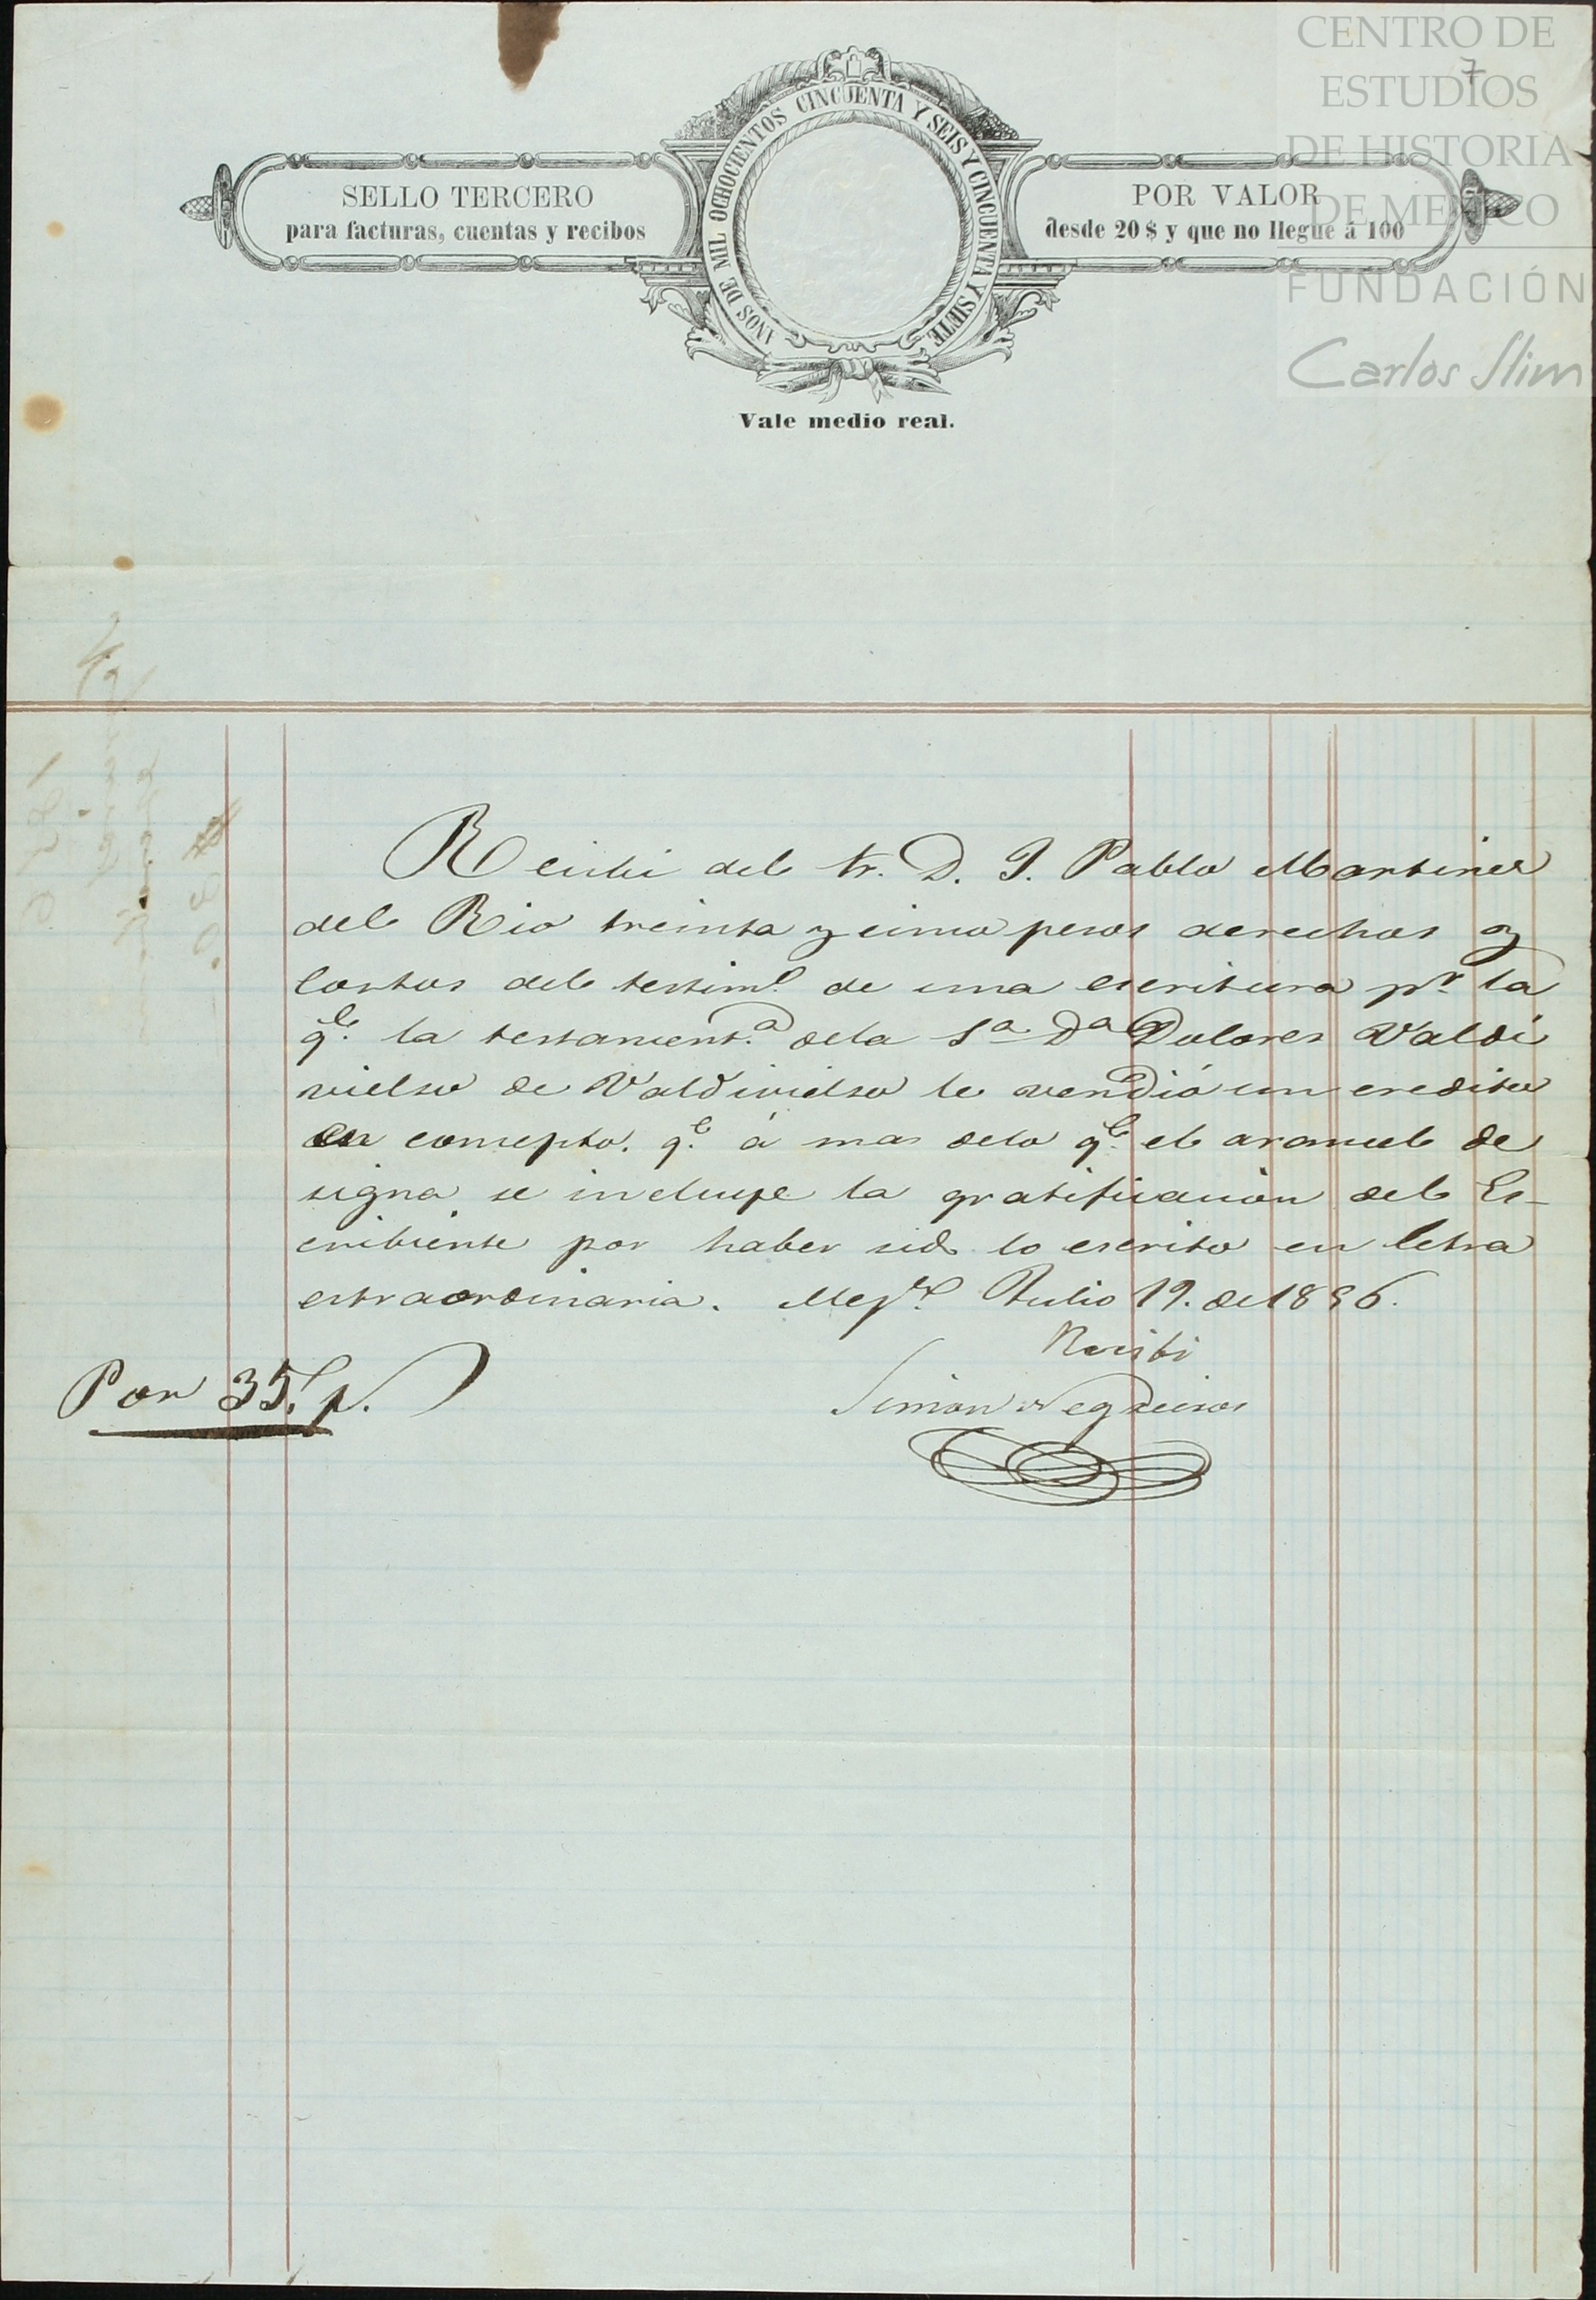 CENTRO DE
ESTUDIOS
DE HISTORIA
DE MEXICO
FUNDACIÓN
Carlos Slim
7
AÑOS DE MIL OCHOCIENTOS CINCUENTA Y SEIS Y CINCUENTA Y SIETE
SELLO TERCERO
para facturas, cuentas y recibos
POR VALOR
desde 20 $ y que no llegue á 100
Vale medio real.
Recibi del Sr. D. J. Pablo Martinez
del Rio treinta y cinco pesos derechos y
costos del testimo. de una escritura pr. la
qe. la testament.a dela Sa Da Dolores Valdi
vielso de Valdivielso le vendió un credito
en concepto. qe. á mas delo qe. el arancel de
signa se incluye la gratificacion del Es-
cribiente por haber sido lo escrito en letra
estraordinaria. Mejco. Julio 19. de 1856.
Recibi
Simon Negreiros
Por 35. p.